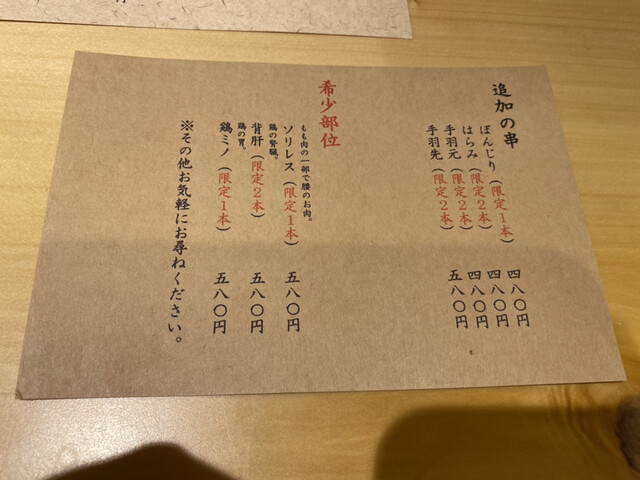 追加の串
ぼんじり（限定1本）　四八〇円
はらみ（限定2本）　四八〇円
手羽元（限定2本）　四八〇円
手羽先（限定2本）　五八〇円
希少部位
もも肉の一部で腰のお肉。
ソリレス（限定1本）　五八〇円
鶏の腎臓。
背肝（限定2本）　五八〇円
鶏の胃。
鶏ミノ（限定1本）　五八〇円
※その他お気軽にお尋ねください。